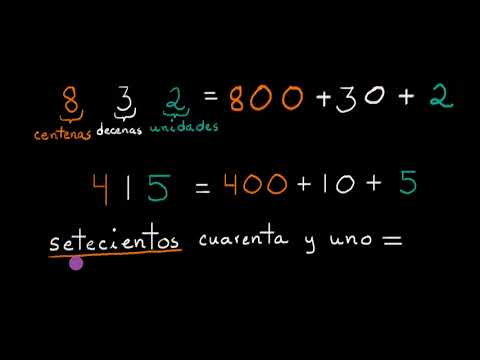 8 3 2 = 800 + 30 + 2
centenas decenas unidades
415 = 400 + 10 + 5
setecientos cuarenta y uno =